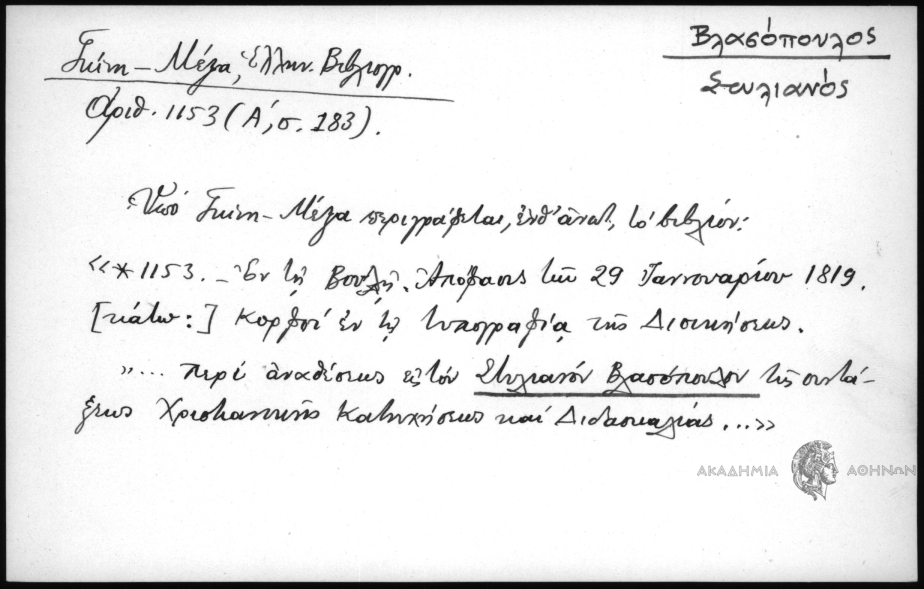 Βλασόπουλος
Στυλιανός
Γκίνη - Μέξα, Ἑλλην. Βιβλιογρ.
ἀριθ. 1153 (Α΄, σ. 183).
Ὑπό Γκίνη - Μέξα περιγράφεται, ἐνθ' ἀνωτ., τό βιβλίον:
«*1153. - Ἐν τῇ Βουλῇ. Ἀπόφασις τῇ 29 Ἰαννουαρίου 1819.
[κάτω:] Κορφοί ἐν τῇ τυπογραφίᾳ τῆς Διοικήσεως.
»... περί ἀναθέσεως εἰς τόν Στυλιανόν Βλασόπουλον τῆς συντά-
ξεως Χριστιανικῆς Κατηχήσεως καί Διδασκαλίας...»
ΑΚΑΔΗΜΙΑ ΑΘΗΝΩΝ